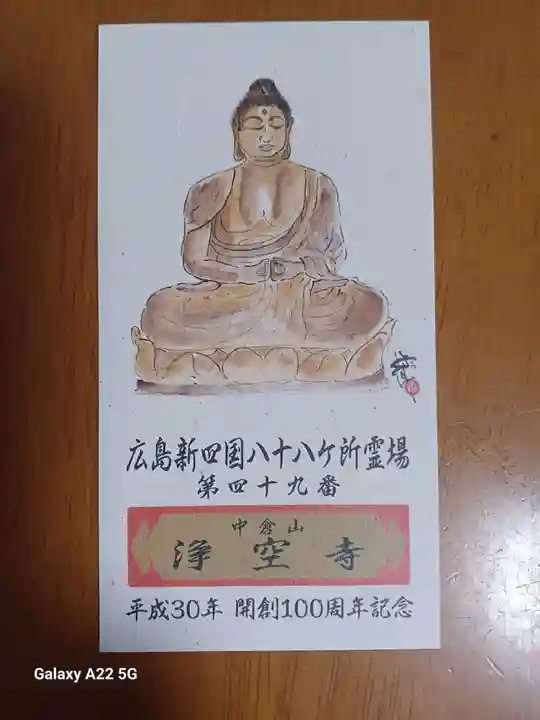 広島新四国八十八ケ所霊場
第四十九番
中倉山
浄空寺
平成30年 開創100周年記念
Galaxy A22 5G